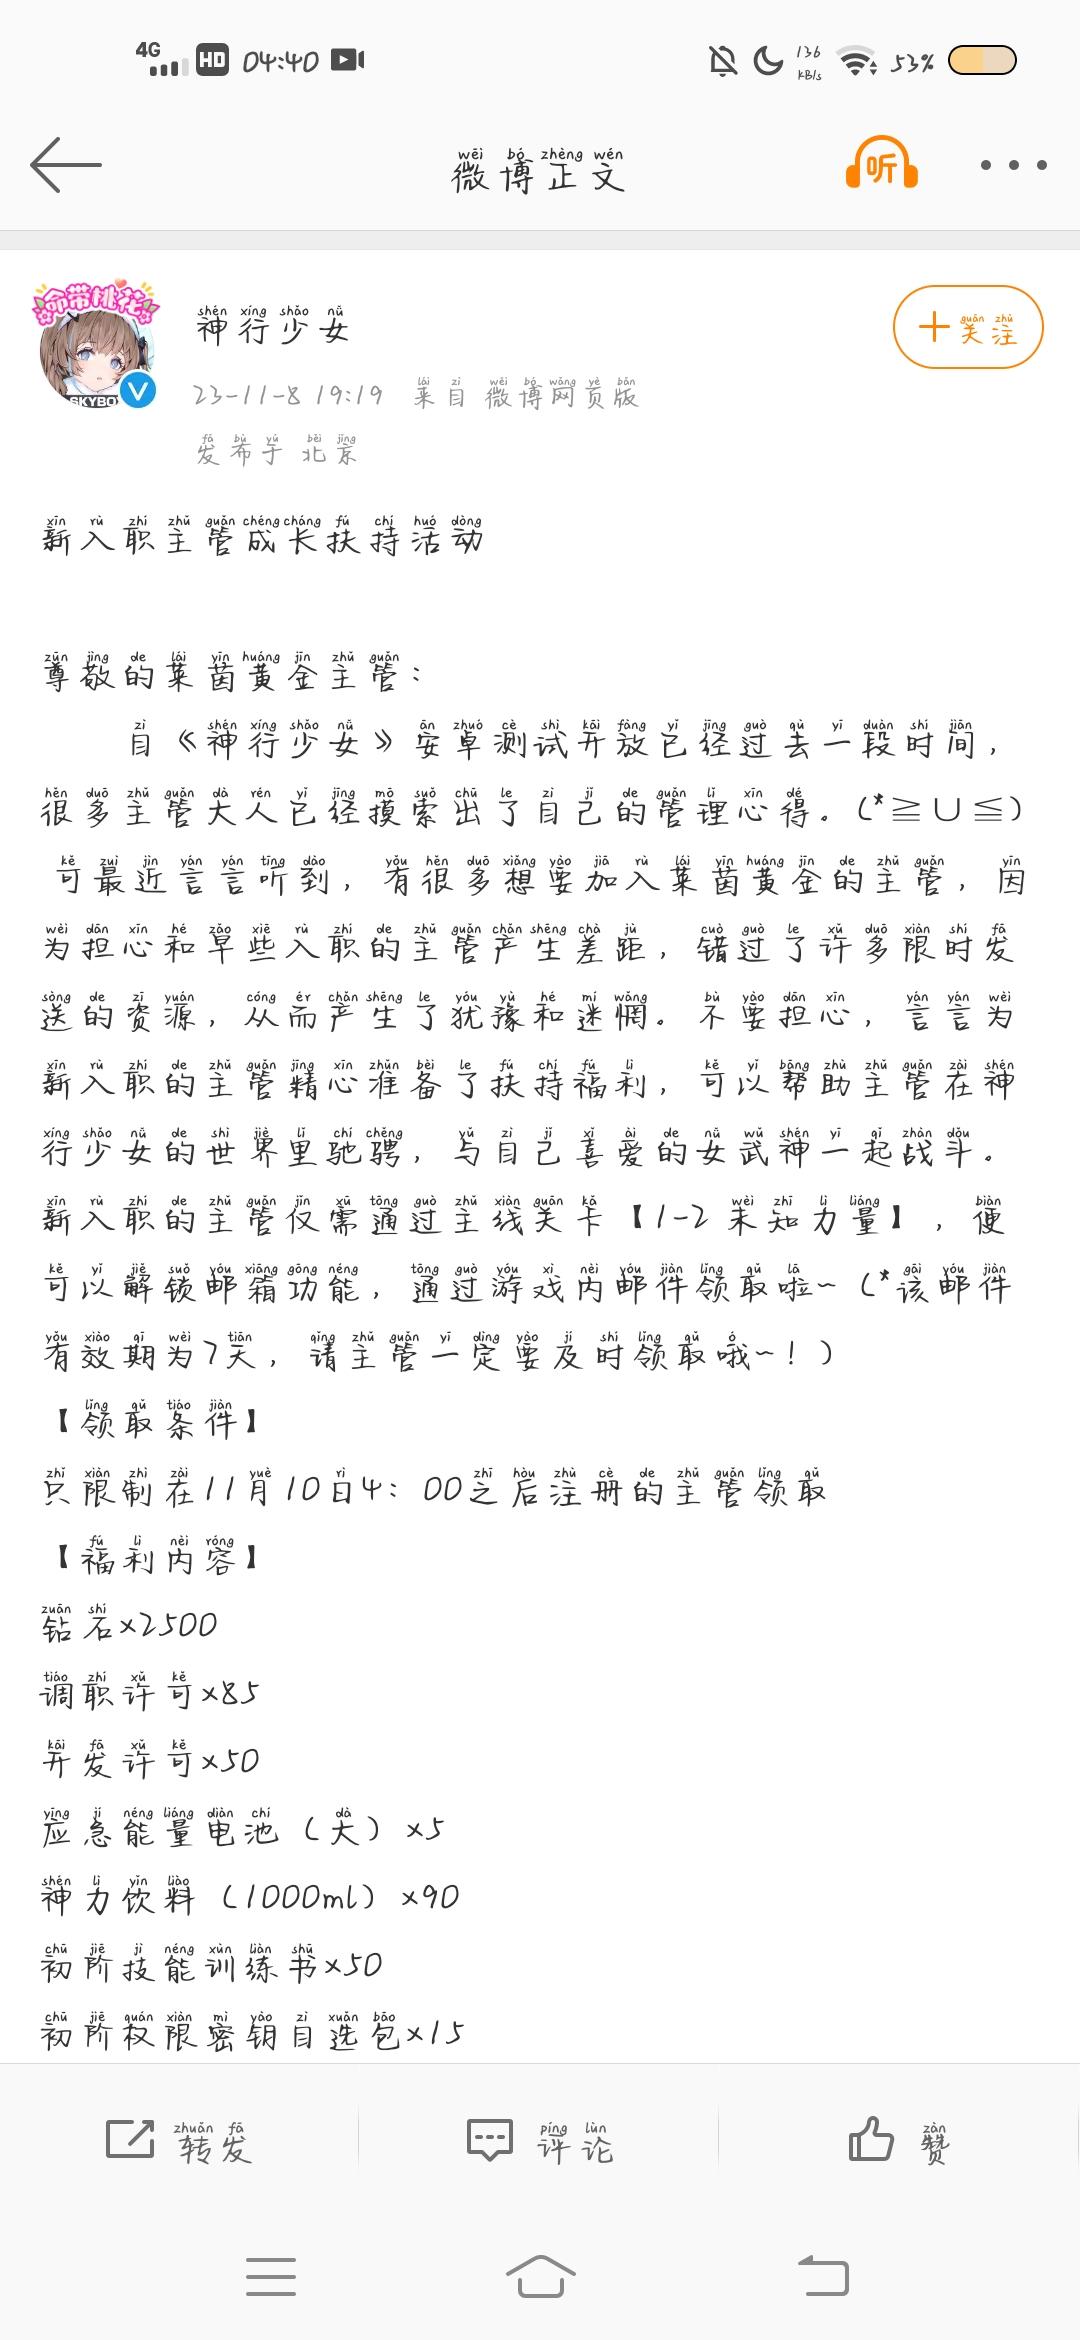 4G HD 04:40 136 KB/s 53%
微博正文 听
命带桃花
神行少女
+关注
SKYBO
23-11-8 19:19 来自 微博网页版
发布于 北京
新入职主管成长扶持活动
尊敬的莱茵黄金主管：
自《神行少女》安卓测试开放已经过去一段时间，
很多主管大人已经摸索出了自己的管理心得。(*≧∪≦)
可最近言言听到，有很多想要加入莱茵黄金的主管，因
为担心和早些入职的主管产生差距，错过了许多限时发
送的资源，从而产生了犹豫和迷惘。不要担心，言言为
新入职的主管精心准备了扶持福利，可以帮助主管在神
行少女的世界里驰骋，与自己喜爱的女武神一起战斗。
新入职的主管仅需通过主线关卡【1-2 未知力量】，便
可以解锁邮箱功能，通过游戏内邮件领取啦~（*该邮件
有效期为7天，请主管一定要及时领取哦~！）
【领取条件】
只限制在11月10日4：00之后注册的主管领取
【福利内容】
钻石x2500
调职许可x85
开发许可x50
应急能量电池（大）x5
神力饮料（1000ml）x90
初阶技能训练书x50
初阶权限密钥自选包x15
转发 评论 赞